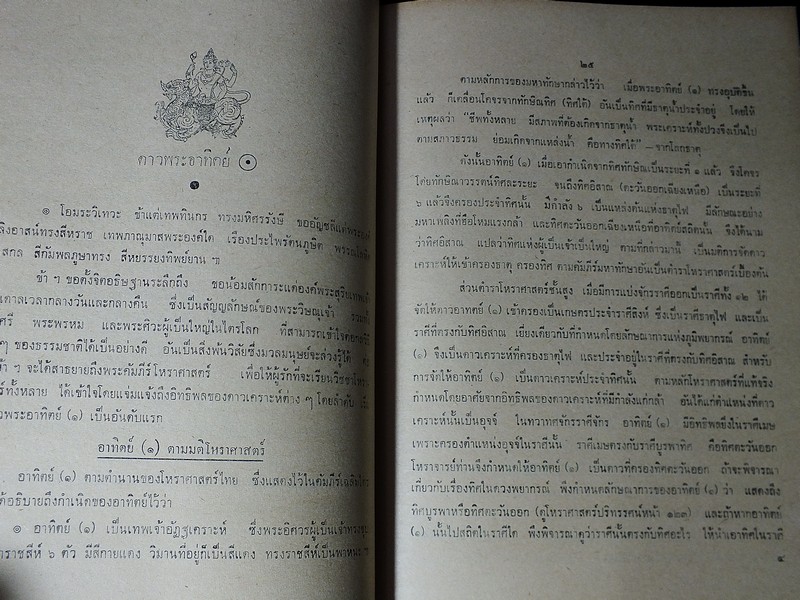 ดาวพระอาทิตย์
๑ โอมระวิเทวะ ข้าแต่เทพทินกร ทรงมหิศรรังษี ขออัญชลีแด่พระองค์
ลิงอาสน์ทรงสีหราช เทพภาณุมาสพระองค์ใด เรืองประไพรัตนภูษิต
สกล สีกัมพลภูษาทรง สีหยรรยงทิพย์ยาน ฯ
ข้า ฯ ขอตั้งจิตอธิษฐานระลึกถึง ขอน้อมสักการะแด่องค์พระสุริยเทพเจ้า
ดาลเวลากลางวันและกลางคืน ซึ่งเป็นสัญญลักษณ์ของพระวิษณุเจ้า
ศรี พระพรหม และพระศิวะผู้เป็นใหญ่ในไตรโลก ที่สามารถเข้าใจ
ๆ ของธรรมชาติได้เป็นอย่างดี อันเป็นสิ่งพ้นวิสัยซึ่งมวลมนุษย์จะล่วงรู้ได้
ข้า ฯ จะได้สาธยายถึงพระคัมภีร์โหราศาสตร์ เพื่อให้ผู้รักที่จะเรียนวิชา
ร์ทั้งหลาย ได้เข้าใจโดยแจ่มแจ้งถึงอิทธิพลของดาวเคราะห์ต่าง ๆ โดยลำดับ
วพระอาทิตย์ (๑) เป็นอันดับแรก
อาทิตย์ (๑) ตามมติโหราศาสตร์
อาทิตย์ (๑) ตามตำนานของโหราศาสตร์ไทย ซึ่งแสดงไว้ในคัมภีร์เฉลิมไตร
ด้อธิบายถึงกำเนิดของอาทิตย์ไว้ว่า
๑ อาทิตย์ (๑) เป็นเทพเจ้าอัฏฐเคราะห์ ซึ่งพระอิศวรผู้เป็นเจ้าทรง
าราชสีห์ ๖ ตัว มีสีกายแดง วิมานที่อยู่ก็เป็นสีแดง ทรงราชสีห์เป็นพาหนะ ฯ
๒๕
ตามหลักการของมหาทักษากล่าวไว้ว่า เมื่อพระอาทิตย์ (๑) ทรงอุบัติขึ้น
แล้ว ก็เคลื่อนโคจรจากทักษิณทิศ (ทิศใต้) อันเป็นทิศที่มีธาตุน้ำประจำอยู่ โดยให้
เหตุผลว่า “ชีพทั้งหลาย มีสภาพที่ต้องเกิดจากธาตุน้ำ พระเคราะห์ทั้งปวงจึงเป็นไป
ตามสภาวธรรม ย่อมเกิดจากแหล่งน้ำ คือทางทิศใต้”—จากโลกธาตุ
ดังนั้นอาทิตย์ (๑) เมื่อเอากำเนิดจากทิศทักษิณเป็นระยะที่ ๑ แล้ว จึงโคจร
โดยทักษิณาวรรตน์ทิศละระยะ จนถึงทิศอิสาณ (ตะวันออกเฉียงเหนือ) เป็นระยะที่
๖ แล้วจึงครองประจำทิศนั้น มีกำลัง ๖ เป็นแหล่งต้นแห่งธาตุไฟ มีลักษณะอย่าง
มหาเพลิงที่ฮือโหมแรงกล้า และทิศตะวันออกเฉียงเหนือที่อาทิตย์สถิตนั้น จึงได้นาม
ว่าทิศอิสาณ แปลว่าทิศแห่งผู้เป็นเจ้าเป็นใหญ่ ตามที่กล่าวมานี้ เป็นมติการจัดดาว
เคราะห์ให้เข้าครองธาตุ ครองทิศ ตามคัมภีร์มหาทักษาอันเป็นตำราโหราศาสตร์เบื้องต้น
ส่วนตำราโหราศาสตร์ชั้นสูง เมื่อมีการแบ่งจักรราศีออกเป็นราศีทั้ง ๑๒ ได้
จัดให้ดาวอาทิตย์ (๑) เข้าครองเป็นเกษตรประจำราศีสิงห์ ซึ่งเป็นราศีธาตุไฟ และเป็น
ราศีที่ตรงกับทิศอิสาณ เยี่ยงเดียวกับที่กำหนดโดยลักษณาการแห่งภูมิพยากรณ์ อาทิตย์
(๑) จึงเป็นดาวเคราะห์ที่ครองธาตุไฟ และประจำอยู่ในราศีที่ตรงกับทิศอิสาณ สำหรับ
การจัดให้อาทิตย์ (๑) เป็นดาวเคราะห์ประจำทิศนั้น ตามหลักโหราศาสตร์ที่แท้จริง
กำหนดโดยอาศัยจากอิทธิพลของดาวเคราะห์ที่มีกำลังแก่กล้า อันได้แก่ตำแหน่งที่ดาว
เคราะห์นั้นเป็นอุจจ์ ในทวาทศจักรราศีจักร อาทิตย์ (๑) มีอิทธิพลยิ่งในราศีเมษ
เพราะครองตำแหน่งอุจจ์ในราศีนั้น ราศีเมษตรงกับราศีบูรพาทิศ คือทิศตะวันออก
โหราจารย์ท่านจึงกำหนดให้อาทิตย์ (๑) เป็นดาวที่ครองทิศตะวันออก ถ้าจะพิจารณา
เกี่ยวกับเรื่องทิศในดวงพยากรณ์ พึงกำหนดลักษณาการของอาทิตย์ (๑) ว่า แสดงถึง
ทิศบูรพาหรือทิศตะวันออก (ดูโหราศาสตร์ปริทรรศน์หน้า ๑๒๓) และถ้าหากอาทิตย์
(๑) นั้นไปสถิตในราศีใด พึงพิจารณาดูว่าราศีนั้นตรงกับทิศอะไร ให้นำเอาทิศในราศี
๔